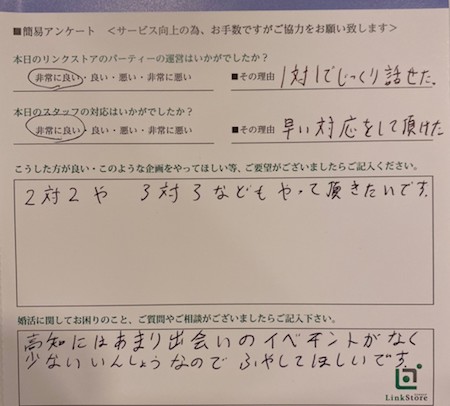 ■簡易アンケート ＜サービス向上の為、お手数ですがご協力をお願い致します＞
本日のリンクストアのパーティーの運営はいかがでしたか?
非常に良い・良い・悪い・非常に悪い ■その理由 1対1でじっくり話せた。
本日のスタッフの対応はいかがでしたか?
非常に良い・良い・悪い・非常に悪い ■その理由 早い対応をして頂けた
こうした方が良い・このような企画をやってほしい等、ご要望がございましたらご記入ください。
2対2や 3対3などもやって頂きたいです。
婚活に関してお困りのこと、ご質問やご相談がございましたらご記入下さい。
高知にはあまり出会いのイベントがなく
少ないいんしょうなので ふやしてほしいです。
LinkStore